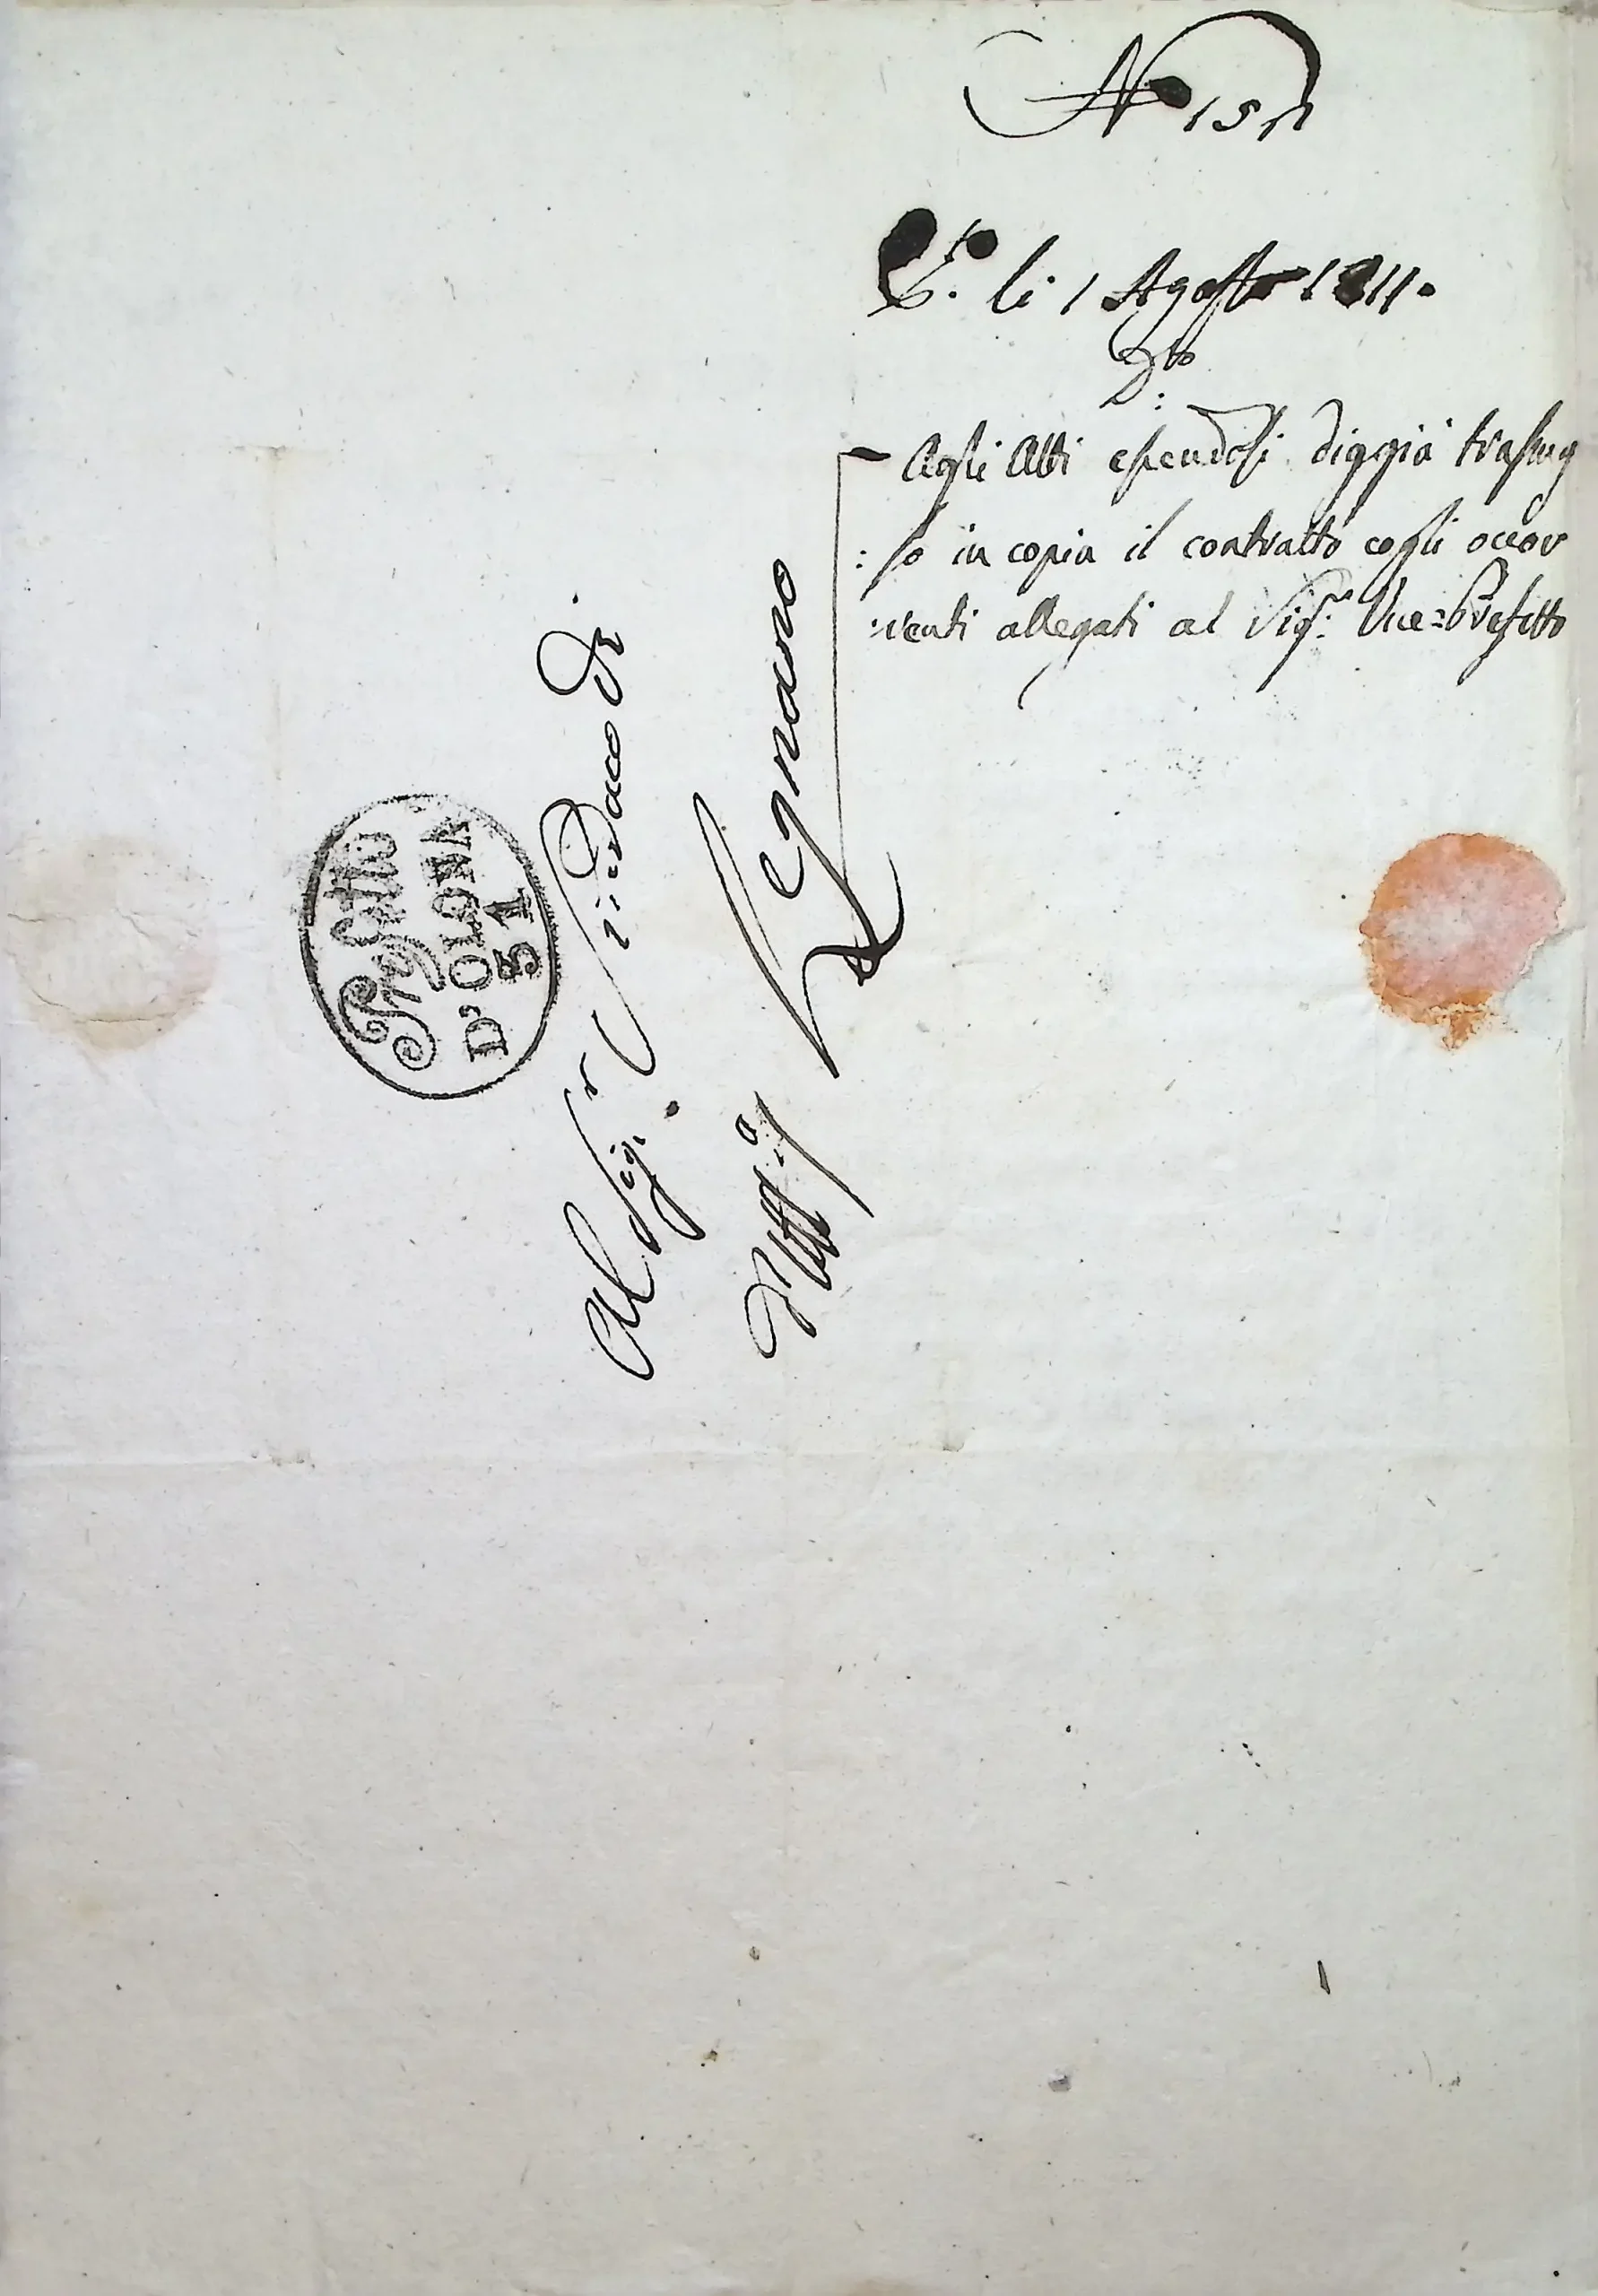 N° 151
P.to li 1 Agosto 1811.
D.to
Agli Atti essendosi diggià trasmes
:so in copia il contratto cogli occor
:renti allegati al Sig.r Vice=Prefetto
Al Sig.r Sindaco di
Legnano
D'OLONA
51